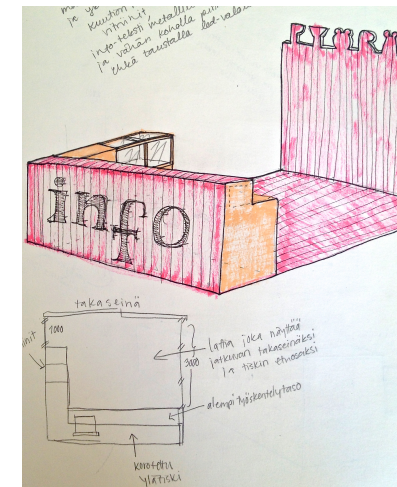 ja
kuution
info-teksti metalli
ja vähän koholla
ehkä taustalla led-valai
info
takaseinä
1000
3000
lattia joka näyttää
jatkuvan takaseinäksi
ja tiskin etuosaksi
alempi työskentelytaso
korotettu
ylätiski